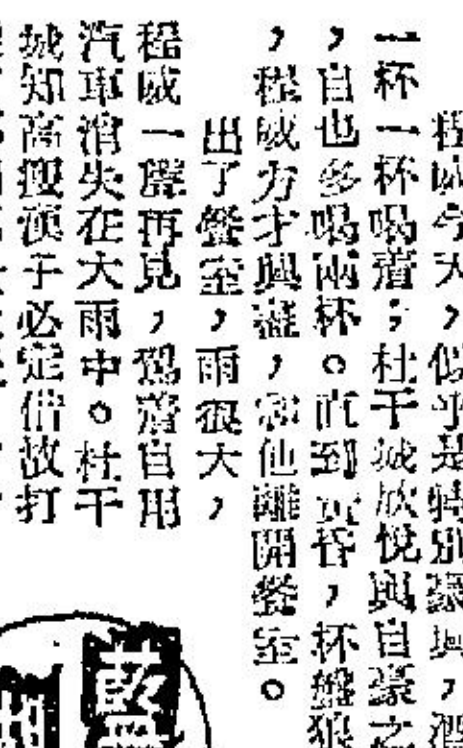 程威今天,似乎是特別豪興,酒
一杯一杯喝着;杜干城欣悅與自豪之
,自也多喝兩杯。直到黃昏,杯盤狼
,程威方才興盡,和他離開餐室。
出了餐室,雨很大,
程威一聲再見,駕着自用
汽車消失在大雨中。杜干
城知高瘦漢子必定借故打
藍